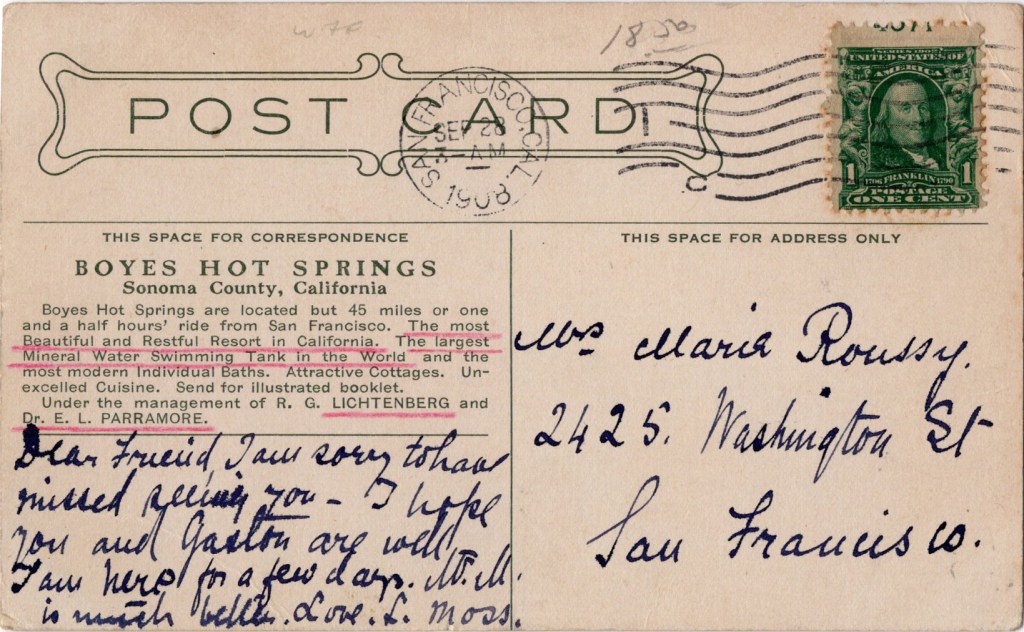 18.50
POST CARD
SAN FRANCISCO, CAL.
SEP 28
3-AM
1908
SERIES 1902
UNITED STATES OF
AMERICA
1 1706 FRANKLIN 1790 1
POSTAGE
ONE CENT
THIS SPACE FOR CORRESPONDENCE
BOYES HOT SPRINGS
Sonoma County, California
Boyes Hot Springs are located but 45 miles or one
and a half hours' ride from San Francisco. The most
Beautiful and Restful Resort in California. The largest
Mineral Water Swimming Tank in the World and the
most modern Individual Baths. Attractive Cottages. Un-
excelled Cuisine. Send for illustrated booklet.
Under the management of R. G. LICHTENBERG and
Dr. E. L. PARRAMORE.
Dear Friend, I am sorry to have
missed seeing you - I hope
you and Gaston are well
I am here for a few days. M. M.
is much better. Love. L. Moss.
THIS SPACE FOR ADDRESS ONLY
Mrs Maria Roussy.
2425. Washington St
San Francisco.